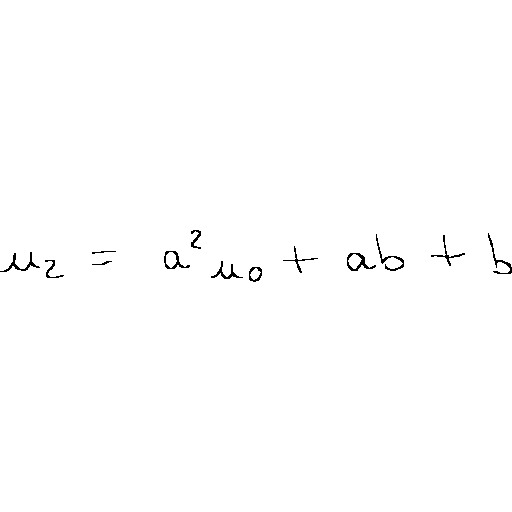 u₂ = a²u₀ + ab + b